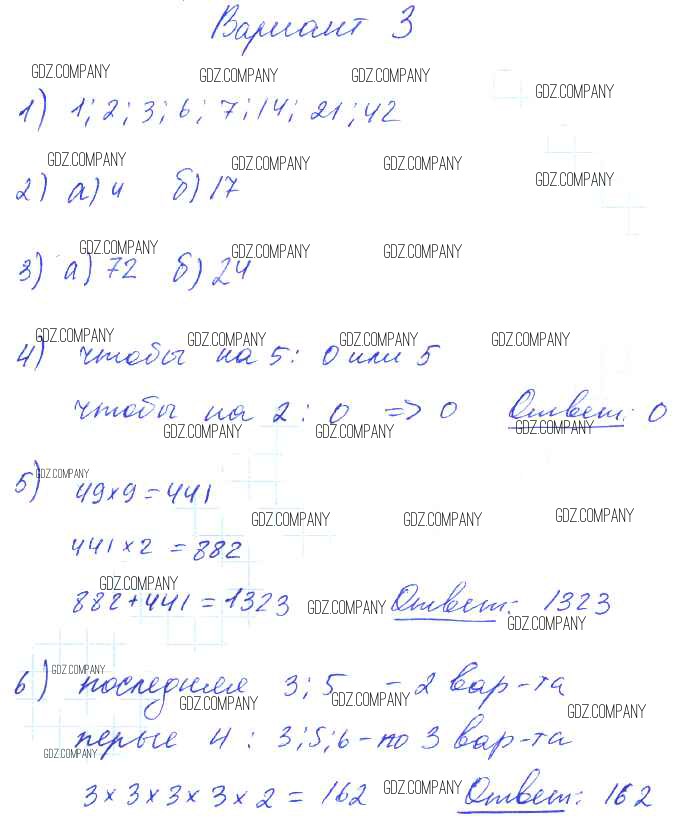 Вариант 3
GDZ.COMPANY GDZ.COMPANY GDZ.COMPANY GDZ.COMPANY
1) 1; 2; 3; 6; 7; 14; 21; 42
GDZ.COMPANY GDZ.COMPANY GDZ.COMPANY GDZ.COMPANY
2) а) 4 б) 17
GDZ.COMPANY GDZ.COMPANY GDZ.COMPANY
3) а) 72 б) 24
GDZ.COMPANY GDZ.COMPANY GDZ.COMPANY GDZ.COMPANY
4) чтобы на 5: 0 или 5
чтобы на 2: 0 => 0 Ответ: 0
GDZ.COMPANY GDZ.COMPANY GDZ.COMPANY
GDZ.COMPANY
5) 49x9=441
GDZ.COMPANY GDZ.COMPANY GDZ.COMPANY
441x2=882
GDZ.COMPANY
882+441=1323 GDZ.COMPANY Ответ: 1323
GDZ.COMPANY
GDZ.COMPANY
6) последняя 3; 5 - 2 вар-та
GDZ.COMPANY GDZ.COMPANY GDZ.COMPANY
перые 4: 3; 5; 6 - по 3 вар-та
GDZ.COMPANY
3x3x3x3x2=162 GDZ.COMPANY Ответ: 162